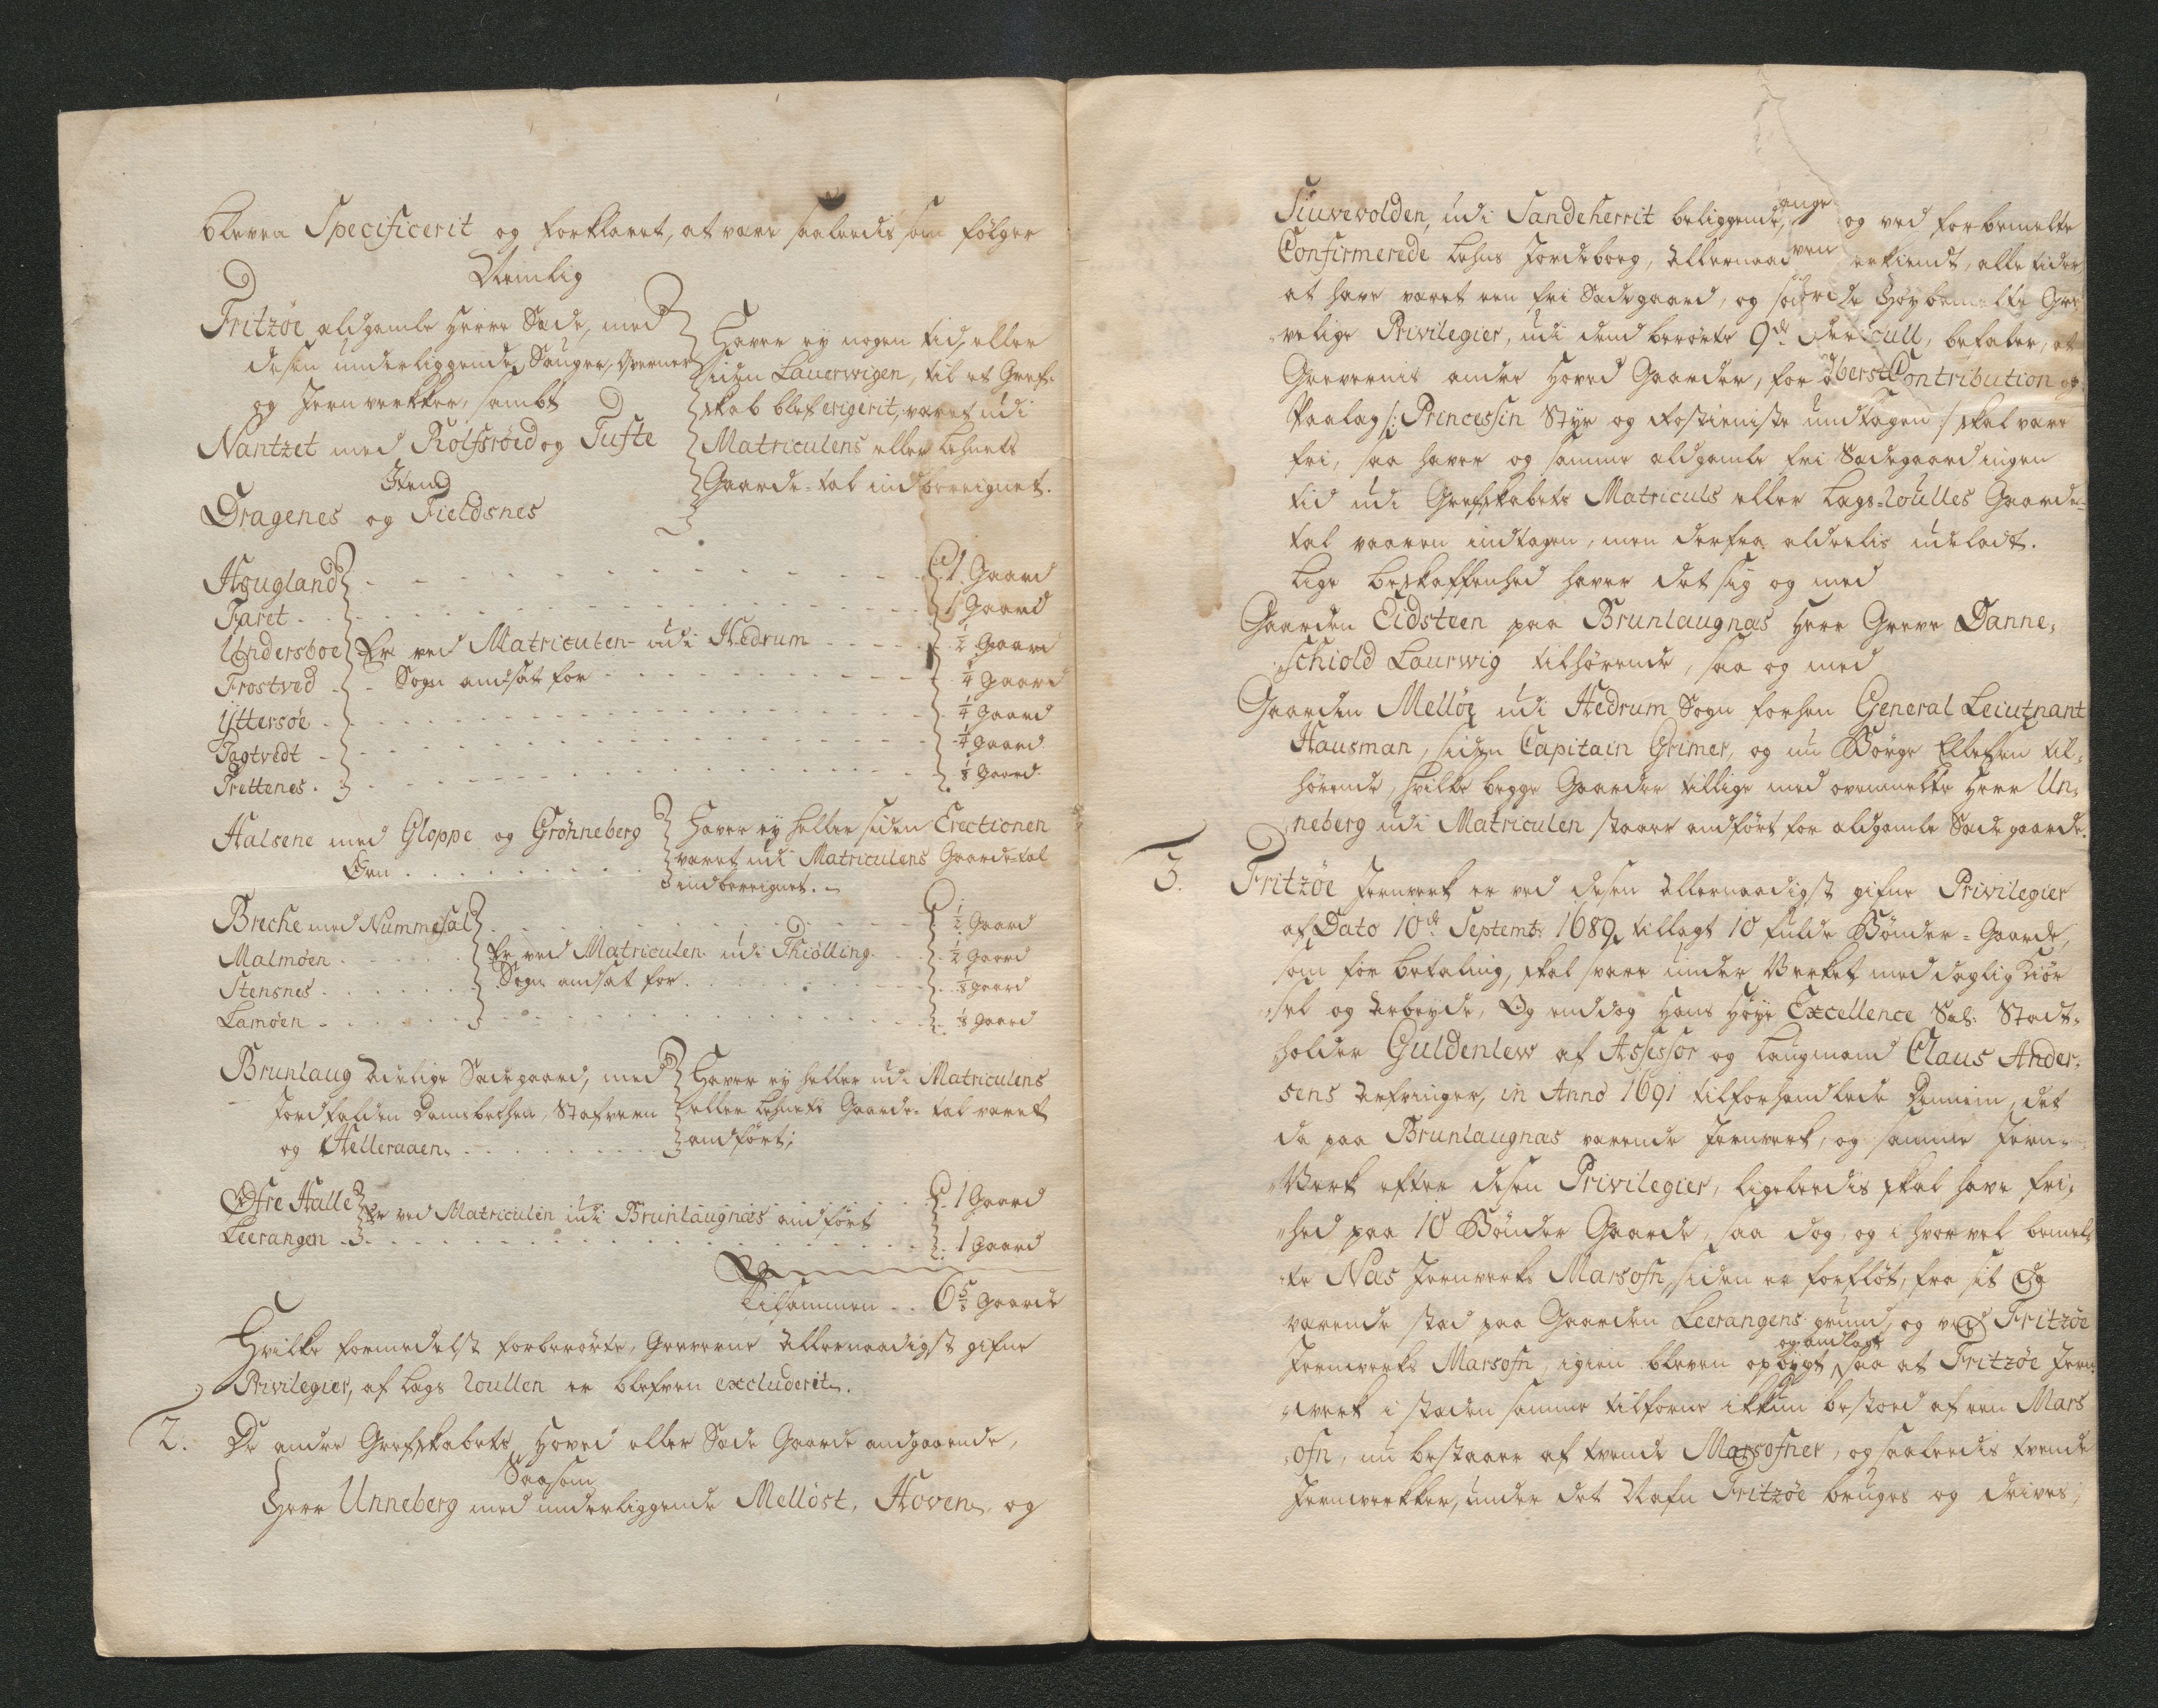 bleven Specificerit og forklaret, at være saaledis som følger
Nemlig
Fritzøe aldgamle Herre Sæde, med
desen underliggende Sauger, Qverner
og Jernverkker, sambt
Nantzet med Rolfsröed og Tufte
Item
Dragenes og Fieldsnes
Haver ey nogen tid, eller
siden Laurwigen, til et Gref-
skab blef erigerit, været udi
Matriculens eller Lehnets
Gaarde-tal indbereignet.
Hougland - 1 Gaard
Faret - 1 Gaard
Undersboe Er ved Matriculen udi Hedrum - 1/2 Gaard
Frostved - Sogn andsat for - 1/4 Gaard
Yttersøe - 1/4 Gaard
Jagtvedt - 1/4 Gaard
Prettenes - 1/8 Gaard
Halsene med Gloppe og Gröhneberg
Øen
Haver ey heller siden Erectionen
været udi Matriculens Gaarde-tal
indbereignet.
Breche med Nummesal - 1/2 Gaard
Malmöen - Er ved Matriculen udi Thiölling - 1/2 Gaard
Stensnes - Sogn ansat for - 1/8 Gaard
Lamöen - 1/8 Gaard
Brunlaug Adelige Sædegaard, med
Jordfalden Damsbechen, Stafveren
og Helleraaen
Haver ey heller udi Matriculens
eller Lehnets Gaarde-tal været
andført;
Øfre Halle - 1 Gaard
Er ved Matriculen udi Brunlaugnæs andført
Leerangen - 1 Gaard
Tilsammen .. 6 5/8 Gaarde
Hvilke formedelst forberørte, Greverne Allernaadigst gifne
Privilegier, af Lags Roullen er blefven excluderit.
2. De andre Grefskabets Hoved eller Sæde Gaarde andgaaende,
Saasom
Herre Unneberg med underliggende Mellöst, Hoven og
Siuvevolden, udi Sandeherrit beliggende, og ved forbemelte
Confirmerede Lehns Jordebog, Allernaad erkiendt, alle tider
at have været een fri Sædegaard, og som de Høybemelte Gre-
velige Privilegier, udi dend berørte 9de Articull, befaler, at
Grevernis andre Hoved Gaarder, for Contribution og
Paalag /: Princessin Styr og Rostieniste undtagen :/ skal være
fri, saa haver og samme aldgamle fri Sædegaard ingen
tid udi Grefskabets Matriculs eller Lags-Roulles Gaarde-
tal vaaren indtagen, men derfra aldeelis udeladt.
Lige beskaffenhed haver det sig og med
Gaarden Eidsteen paa Brunlaugnæs Herr Greve Danne-
schiold Laurwig tilhørende, saa og med
Gaarden Mellöe udi Hedrum Sogn forhen General Leiutnant
Hausman, siden Capitain Grimer, og nu Børge Ellefsen til-
hørende, hvilke begge Gaarder tillige med ovenmelte Herr Un-
neberg udi Matriculen staaer andført for aldgamle Sædegaarde.
3. Fritzøe Jernverk er ved desen Allernaadigst gifne Privilegier
af Dato 10de Septembr 1689 tillagt 10 fulde Bønder-Gaarde,
som for betaling, skal svare under Verket med daglig Kiør-
sel og Arbeyde, Og endog Hans Høye Excellence Sal: Stadt-
holder Guldenlew af Assessor og Laugmand Claus Ander-
sens Arfvinger, in Anno 1691 tilforhandlede Dennem det
da paa Brunlaugnæs værende Jernverk, og samme Jern-
Verk efter desen Privilegier, ligeleedis skal have fri-
hed paa 10 Bønder Gaarde, saa dog, og i hvorvel bemel-
te Næs Jernverks Marsofn, siden er forfløt, fra sit da
værende stæd paa Gaarden Leerangens grund, og ved Fritzøe
Jernverks Marsofn, igien bleven opbygt og andlagt, saa at Fritzøe Jern-
verk i steden samme tilforne ikkun bestoed af een Mars
ofn, nu bestaaer af tvende Marsofner, og saaleedis tvende
Jernverkker, under det Nafn Fritzøe bruges og drives;